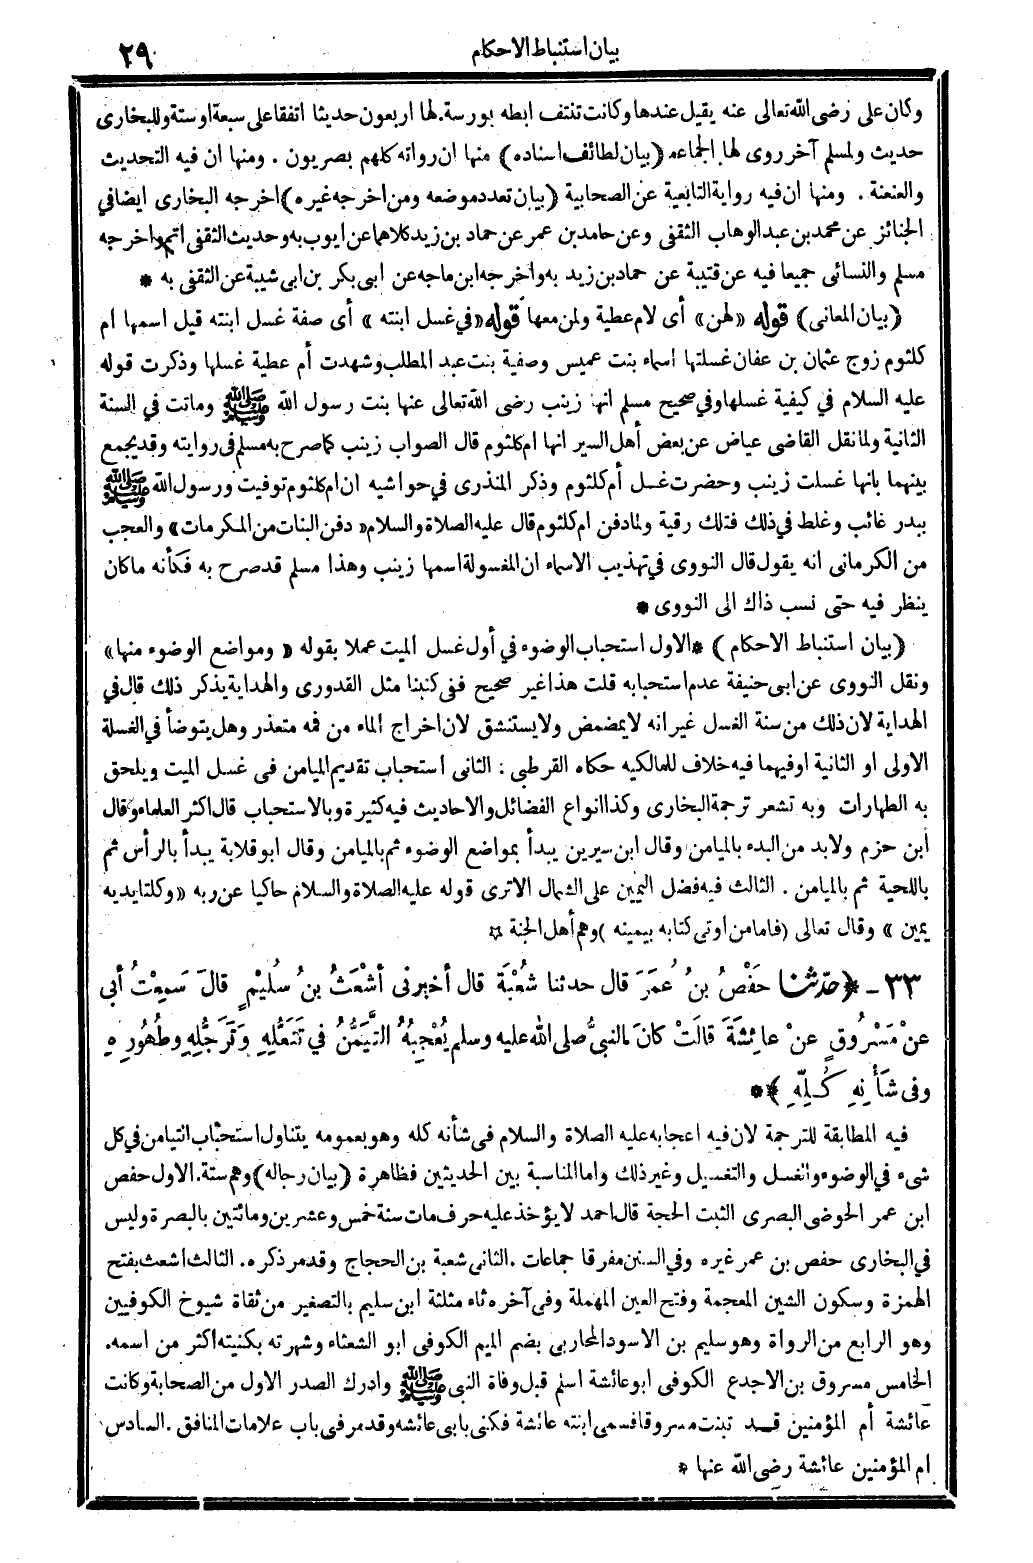 بيان استنباط الاحكام
٢٩
وكان على رضى الله تعالى عنه يقيل عندها وكانت تنتف ابطه بورسة. لها اربعون حديثا اتفقا على سبعة او ستة وللبخارى
حديث ولمسلم آخر روى لها الجماعه (بيان لطائف اسناده) منها ان رواته كلهم بصريون . ومنها ان فيه التحديث
والعنعنة . ومنها ان فيه رواية التابعية عن الصحابية (بيان تعدد موضعه ومن اخرجه غيره) اخرجه البخارى ايضا فى
الجنائز عن محمد بن عبد الوهاب الثقفى وعن حامد بن عمر عن حماد بن زيد كلاهما عن ايوب به وحديث الثقفى اتم واخرجه
مسلم والنسائى جميعا فيه عن قتيبة عن حماد بن زيد به واخرجه ابن ماجه عن ابى بكر بن ابى شيبة عن الثقفى به *
(بيان المعانى) قوله «لهن» أى لام عطية ولمن معها قوله «فى غسل ابنته» أى صفة غسل ابنته قيل اسمها ام
كلثوم زوج عثمان بن عفان غسلتها اسماء بنت عميس وصفية بنت عبد المطلب وشهدت أم عطية غسلها وذكرت قوله
عليه السلام فى كيفية غسلها وفى صحيح مسلم انها زينب رضى الله تعالى عنها بنت رسول الله ﷺ وماتت فى السنة
الثانية ولما نقل القاضى عياض عن بعض أهل السير انها ام كلثوم قال الصواب زينب كما صرح به مسلم فى روايته وقد يجمع
بينهما بانها غسلت زينب وحضرت غسل أم كلثوم وذكر المنذرى فى حواشيه ان ام كلثوم توفيت ورسول الله ﷺ
ببدر غائب وغلط فى ذلك فتلك رقية ولما دفن ام كلثوم قال عليه الصلاة والسلام «دفن البنات من المكرمات» والعجب
من الكرمانى انه يقول قال النووى فى تهذيب الاسماء ان المغسولة اسمها زينب وهذا مسلم قد صرح به فكأنه ما كان
ينظر فيه حتى نسب ذاك الى النووى *
(بيان استنباط الاحكام) * الاول استحباب الوضوء فى أول غسل الميت عملا بقوله «ومواضع الوضوء منها»
ونقل النووى عن ابى حنيفة عدم استحبابه قلت هذا غير صحيح ففى كتبنا مثل القدورى والهداية يذكر ذلك قال فى
الهداية لان ذلك من سنة الغسل غير انه لا يمضمض ولا يستنشق لان اخراج الماء من فمه متعذر وهل يتوضأ فى الغسلة
الاولى او الثانية او فيهما فيه خلاف للمالكيه حكاه القرطبى : الثانى استحباب تقديم الميامن فى غسل الميت ويلحق
به الطهارات وبه تشعر ترجمة البخارى وكذا انواع الفضائل والاحاديث فيه كثيرة وبالاستحباب قال اكثر العلماء وقال
ابن حزم ولابد من البدء بالميامن وقال ابن سيرين يبدأ بمواضع الوضوء ثم بالميامن وقال ابو قلابة يبدأ بالرأس ثم
باللحية ثم بالميامن . الثالث فيه فضل اليمين على الشمال الا ترى قوله عليه الصلاة والسلام حاكيا عن ربه «وكلتا يديه
يمين» وقال تعالى (فاما من اوتى كتابه بيمينه) وهم أهل الجنة ☆
٣٣ - ﴿حدّثنا حَفْصُ بنُ عُمَرَ قال حدثنا شُعْبَةُ قال أخبرنى أشْعَثُ بنُ سُلَيْمٍ قالَ سَمِعْتُ أبى
عنْ مَسْرُوقٍ عنْ عائِشَةَ قالَتْ كانَ النبىُّ صلى الله عليه وسلم يُعْجِبُهُ التَّيَمُّنُ فى تَنَعُّلِهِ وَتَرَجُّلِهِ وطُهُورِهِ
وفى شَأْنِهِ كُلِّهِ﴾ *
فيه المطابقة للترجمة لان فيه اعجابه عليه الصلاة والسلام فى شأنه كله وهو بعمومه يتناول استحباب التيامن فى كل
شىء فى الوضوء والغسل والتغسيل وغير ذلك واما المناسبة بين الحديثين فظاهرة (بيان رجاله) وهم ستة. الاول حفص
ابن عمر الحوضى البصرى الثبت الحجة قال احمد لا يؤخذ عليه حرف مات سنة خمس وعشرين ومائتين بالبصرة وليس
فى البخارى حفص بن عمر غيره وفى السنن مفرقا جماعات . الثانى شعبة بن الحجاج وقد مر ذكره. الثالث اشعث بفتح
الهمزة وسكون الشين المعجمة وفتح العين المهملة وفى آخره ثاء مثلثة ابن سليم بالتصغير من ثقاة شيوخ الكوفيين
وهو الرابع من الرواة وهو سليم بن الاسود المحاربى بضم الميم الكوفى ابو الشعثاء وشهرته بكنيته اكثر من اسمه.
الخامس مسروق بن الاجدع الكوفى ابو عائشة اسلم قبل وفاة النبى ﷺ وادرك الصدر الاول من الصحابة وكانت
عائشة أم المؤمنين قد تبنت مسروقا فسمى ابنته عائشة فكنى بابى عائشه وقد مر فى باب علامات المنافق . السادس
ام المؤمنين عائشة رضى الله عنها *